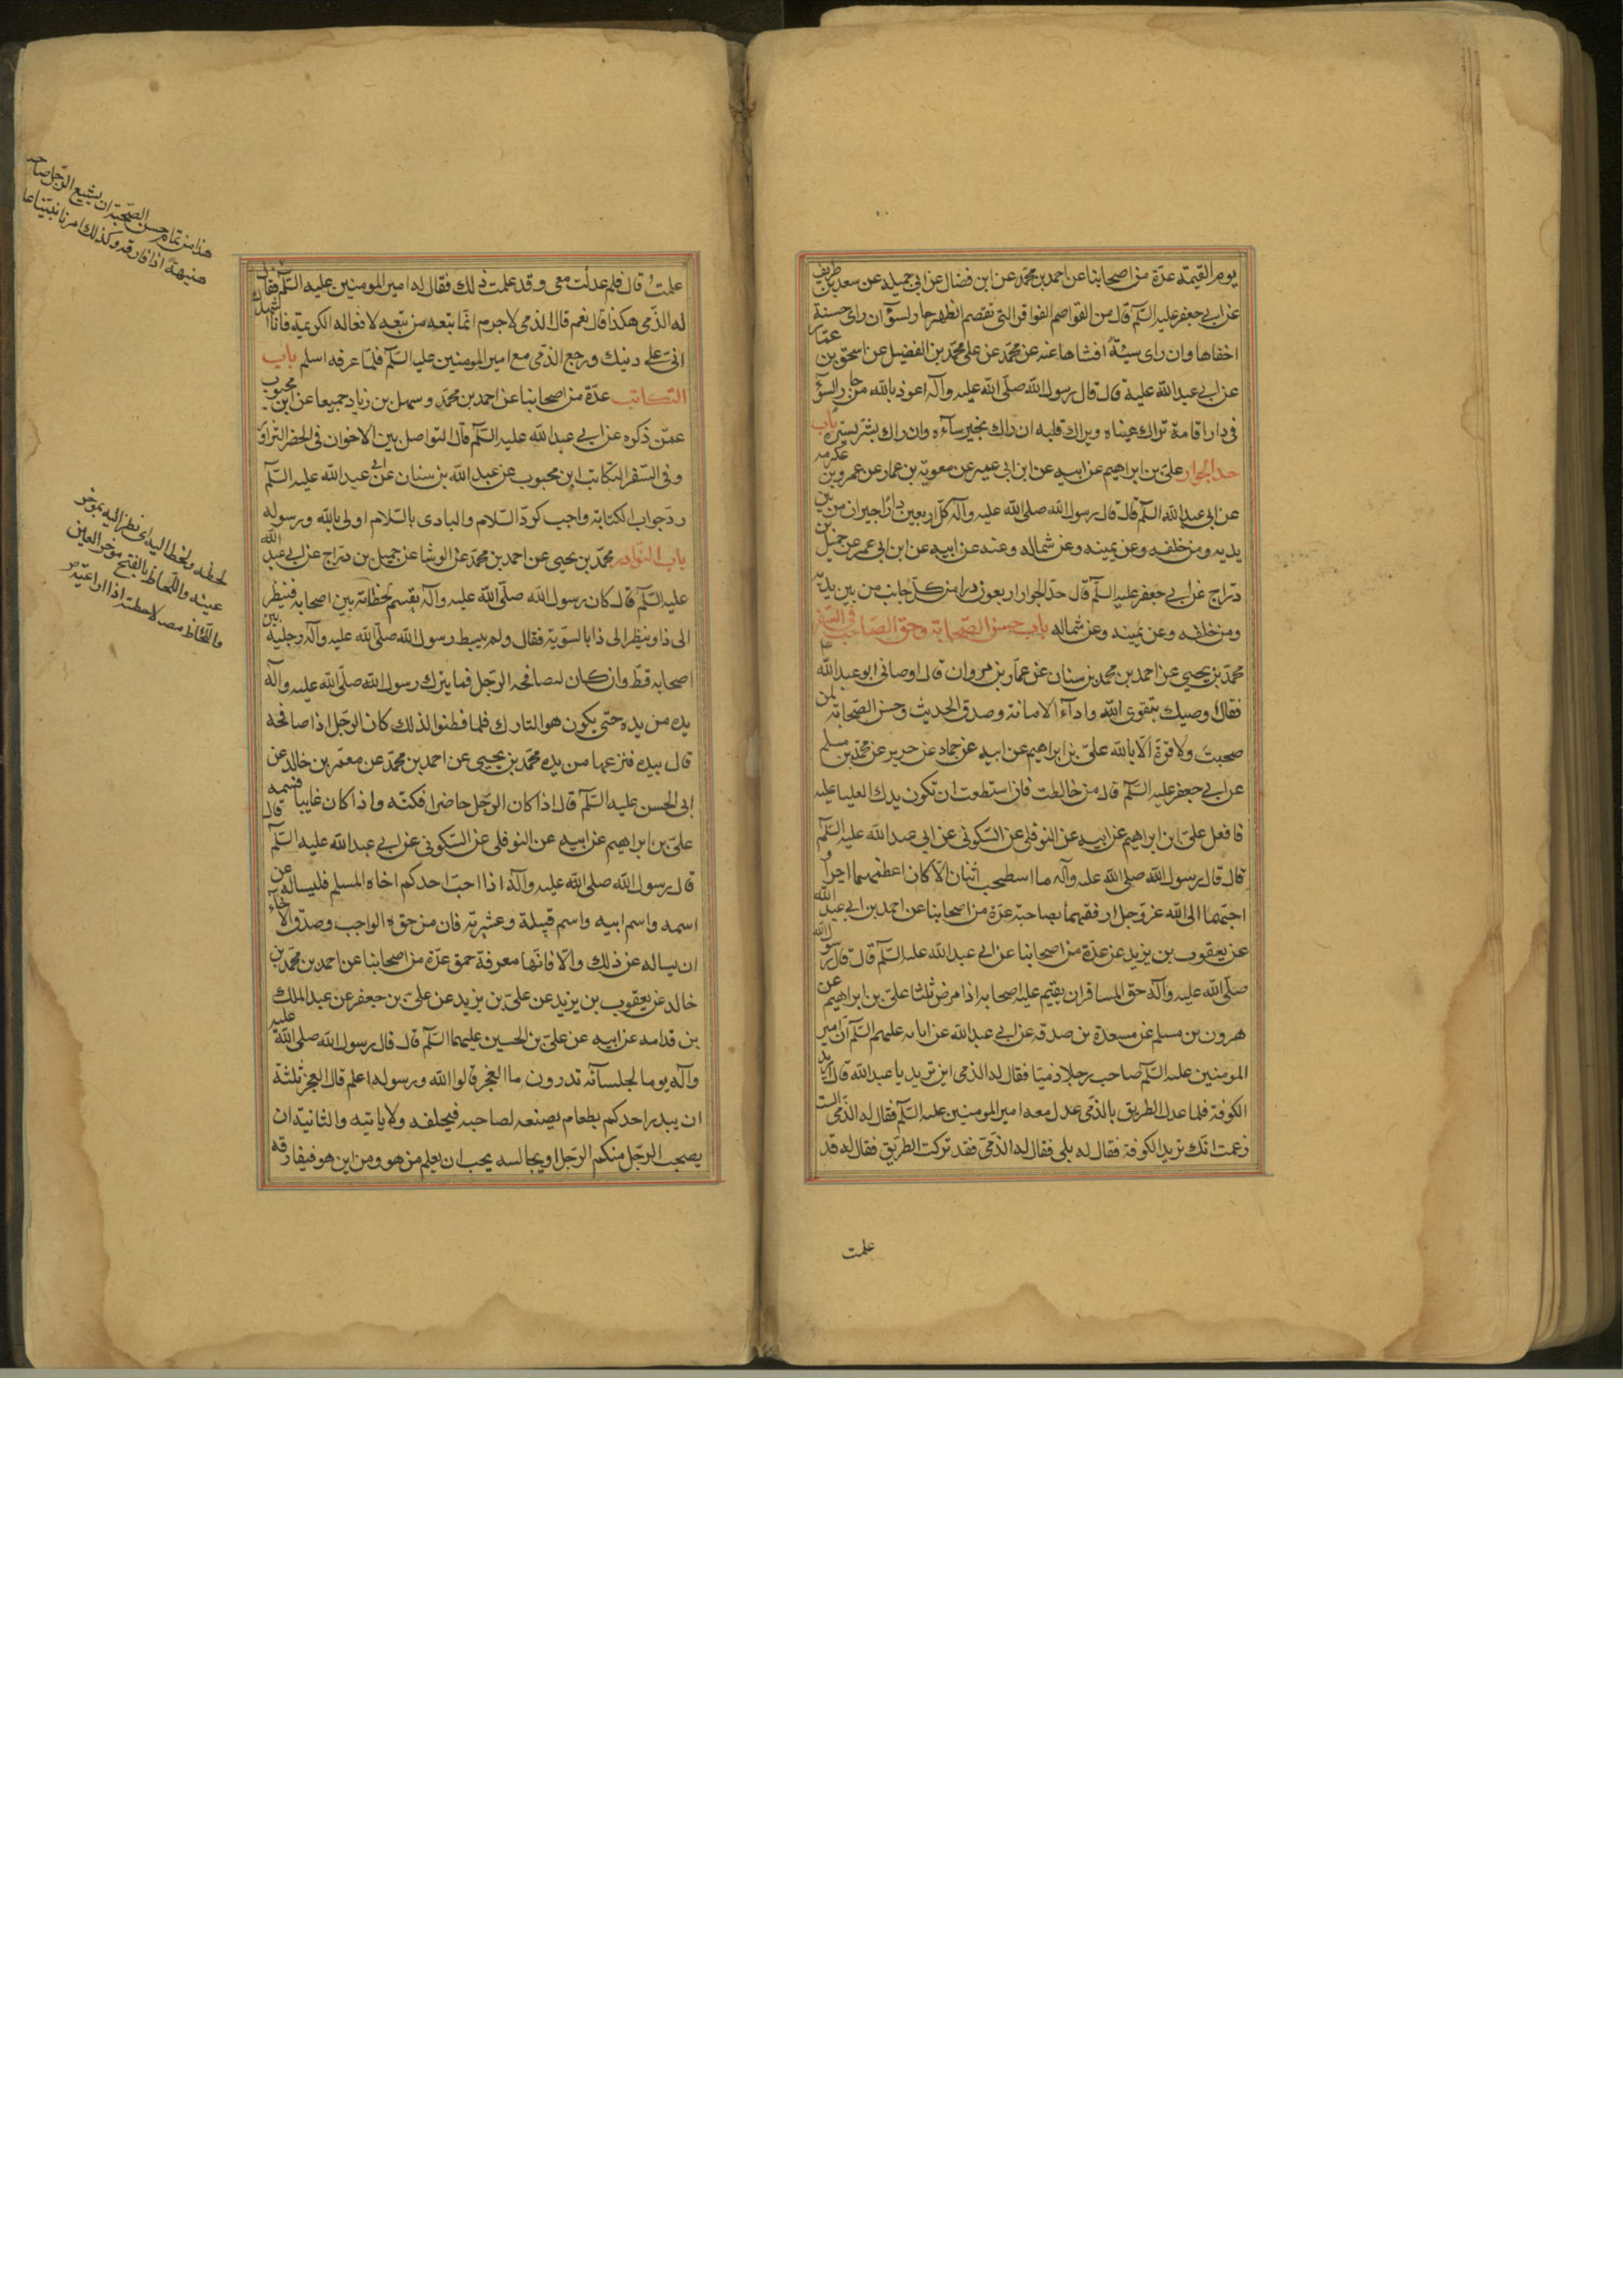 يوم القيمة عدة من اصحابنا عن احمد بن محمد عن ابن فضال عن ابي جميلة عن سعد بن طريف
عن ابي جعفر عليه السلم قال من القواصم الفواقر التي تقصم الظهر جار السوء ان راى حسنة
اخفاها وان راى سيئة افشاها عنه عن محمد عن علي محمد بن الفضيل عن اسحق بن عمار
عن ابي عبد الله عليه قال قال رسول الله صلى الله عليه وآله اعوذ بالله من جار السوء
في دار اقامة تراك عيناه ويراك قلبه ان راك بخير ساءه وان راك بشر يسره باب
حد الجوار علي بن ابراهيم عن ابيه عن ابن ابي عمير عن معوية بن عمار عن عمرو بن عكرمه
عن ابي عبد الله السلم قال قال رسول الله صلى الله عليه وآله كل اربعين دارا جيران من بين
يديه ومن خلفه وعن يمينه وعن شماله وعنه عن ابيه عن ابن ابي عمير عن جميل بن
دراج عن ابي جعفر عليه السلم قال حد الجوار اربعون درا من كل جانب من بين يديه
ومن خلفه وعن يمينه وعن شماله باب حسن الصحابة وحق الصاحب في السفر
محمد بن يحيى عن احمد بن محمد بن سنان عن عمار بن مروان قال اوصاني ابو عبد الله ع
فقال اوصيك بتقوى الله واداء الامانة وصدق الحديث وحسن الصحابة لمن
صحبت ولا قوة الا بالله علي بن ابراهيم عن ابيه عن حماد عن حريز عن محمد بن مسلم
عن ابي جعفر عليه السلم قال من خالطت فان استطعت ان تكون يدك العليا عليه
فافعل علي بن ابراهيم عن ابيه عن النوفلي عن السكوني عن ابي عبد الله عليه السلم
قال قال رسول الله صلى الله عليه وآله ما اسطحب اثنان الا كان اعظمهما اجرا و
احبهما الى الله عز وجل ارفقهما بصاحبه عدة من اصحابنا عن احمد بن ابي عبد الله
عن يعقوب بن يزيد عن عدة من اصحابنا عن ابي عبد الله عليه السلم قال قال رسول الله
صلى الله عليه وآله حق المسافر ان يقيم عليه اصحابه اذا مرض ثلثا علي بن ابراهيم عن
هرون بن مسلم عن مسعدة بن صدقه عن ابي عبد الله عن ابائه عليهم السلم ان امير
المومنين عليه السلم صاحب رجلا ذميا فقال له الذمي اين تريد يا عبد الله قال اريد
الكوفة فلما عدل الطريق بالذمي عدل معه امير المومنين عليه السلم فقال له الذمي الست
زعمت انك تريد الكوفة فقال له بلى فقال له الذمي فقد تركت الطريق فقال له قد
علمت
علمت قال فلم عدلت معي وقد علمت ذلك فقال له امير المومنين عليه السلم فقال
له الذمي هكذا قال نعم قال الذمي لا جرم انما تبعه من تبعه لافعاله الكريمة فانا اشهدك
اني على دينك ورجع الذمي مع امير المومنين عليه السلم فلما عرفه اسلم باب
التكاتب عدة من اصحابنا عن احمد بن محمد وسهل بن زياد جميعا عن ابن محبوب
عمن ذكره عن ابي عبد الله عليه السلم قال التواصل بين الاخوان في الحضر التزاور
وفي السفر التكاتب ابن محبوب عن عبد الله بن سنان عن ابي عبد الله عليه السلم
رد جواب الكتابة واجب كرد السلام والبادى بالسلام اولى بالله ورسوله
باب النوادر محمد بن يحيى عن احمد بن محمد عن الوشا عن جميل بن دراج عن ابي عبد الله
عليه السلم قال كان رسول الله صلى الله عليه وآله يقسم لحظاته بين اصحابه فينظر
الى ذا وينظر الى ذا بالسوية فقال ولم يبسط رسول الله صلى الله عليه وآله رجليه بين
اصحابه قط وان كان ليصافحه الرجل فما يترك رسول الله صلى الله عليه وآله
يده من يده حتى يكون هو التارك فلما فطنوا لذلك كان الرجل اذا صافحه
قال بيده فنزعها من يده محمد بن يحيى عن احمد بن محمد عن معمر بن خالد عن
ابي الحسن عليه السلم قال اذا كان الرجل حاضرا فكنه واذا كان غايبا فسمه
علي بن ابراهيم عن ابيه عن النوفلي عن السكوني عن ابي عبد الله عليه السلم قال
قال رسول الله صلى الله عليه وآله اذا احب احدكم اخاه المسلم فليساله عن
اسمه واسم ابيه واسم قبيلة وعشيرته فان من حقه الواجب وصدق الاخاء
ان يساله عن ذلك والا فانها معرفة حمق عدة من اصحابنا عن احمد بن محمد بن
خالد عن يعقوب بن يزيد عن علي بن يزيد عن علي بن جعفر عن عبد الملك
بن قدامه عن ابيه عن علي بن الحسين عليهما السلم قال قال رسول الله صلى الله عليه
وآله يوما لجلسائه تدرون ما العجز قالوا الله ورسوله اعلم قال العجز ثلثة
ان يبدر احدكم بطعام يصنعه لصاحبه فيخلفه ولا ياتيه والثانية ان
يصحب الرجل منكم الرجل او يجالسه يحب ان يعلم من هو ومن اين هو فيفارقه
هذا من تمام حسن الصحبة ان يشيع الرجل صاحبه
هنيهة اذا فارقه وكذلك امرنا نبينا عا
لحظه ولحظ اليه اى نظر اليه بموخر
عينيه واللحاظ بالفتح موخر العين
واللحاظ مصدر لاحظته اذا راعيته ص